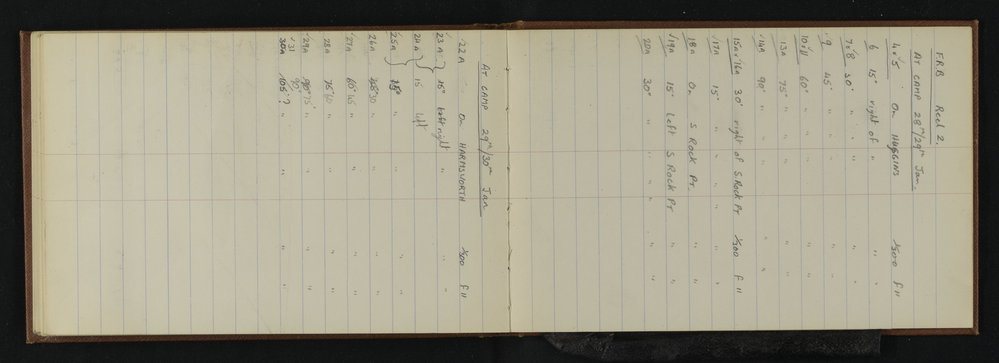 FRB Reel 2.
AT CAMP 28TH/29TH Jan.
4 & 5 On HUGGINS 1/500 f 11
6 15° right of " " "
7 & 8 30° " " " "
9 45° " " " "
10 & 11 60° " " " "
13A 75° " " " "
14A 90° " " " "
15A & 16A 30° right of S. Rock Pt 1/500 f 11
17A 15° " " " "
18A On S Rock Pt. " "
19A 15° Left S Rock Pt " "
20A 30° " " " "
AT CAMP 29TH/30TH Jan
22A On HARMSWORTH 1/500 f 11
23A 15° right " "
24A 15 left
25A " " " "
26A 30 " " " "
27A 60° 45 " " " "
28A 75° 60 " " " "
29A 90° 75° " " " "
31 90°
30A 105°? " " " "